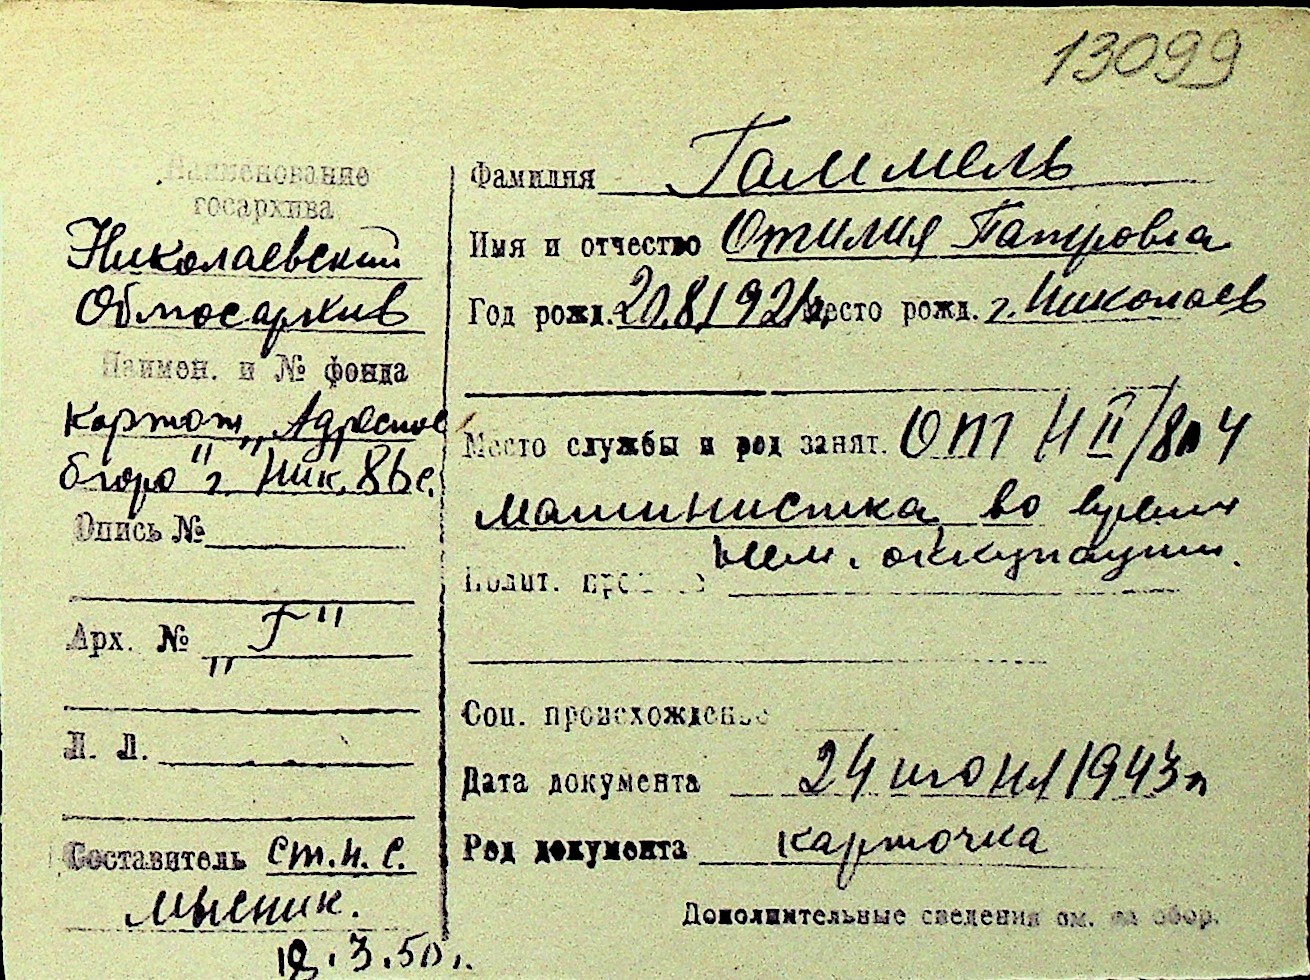 13099
Наименование
госархива
Николаевский
Облгосархив
Наимен. и № фонда
картот. „Адресное
бюро" г. Ник.
Опись №
Арх. № „Г"
Л. Л.
Составитель ст. н. с.
Мысник.
18.3.50г.
Фамилия Гаммель
Имя и отчество Отилия Петровна
Год рожд. 20.8.1921г. Место рожд. г. Николаев
Место службы и род занят. ОПТ Н II/8
машинистка во время
нем. оккупации.
Полит. про
Соц. происхождение
Дата документа 24 июня 1943г
Род документа карточка
Дополнительные сведения см. на обор.